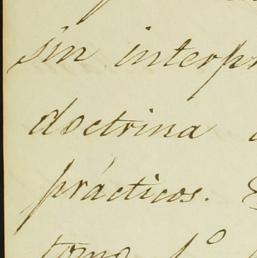 sin interpr
doctrina
prácticos.
tomo 1º